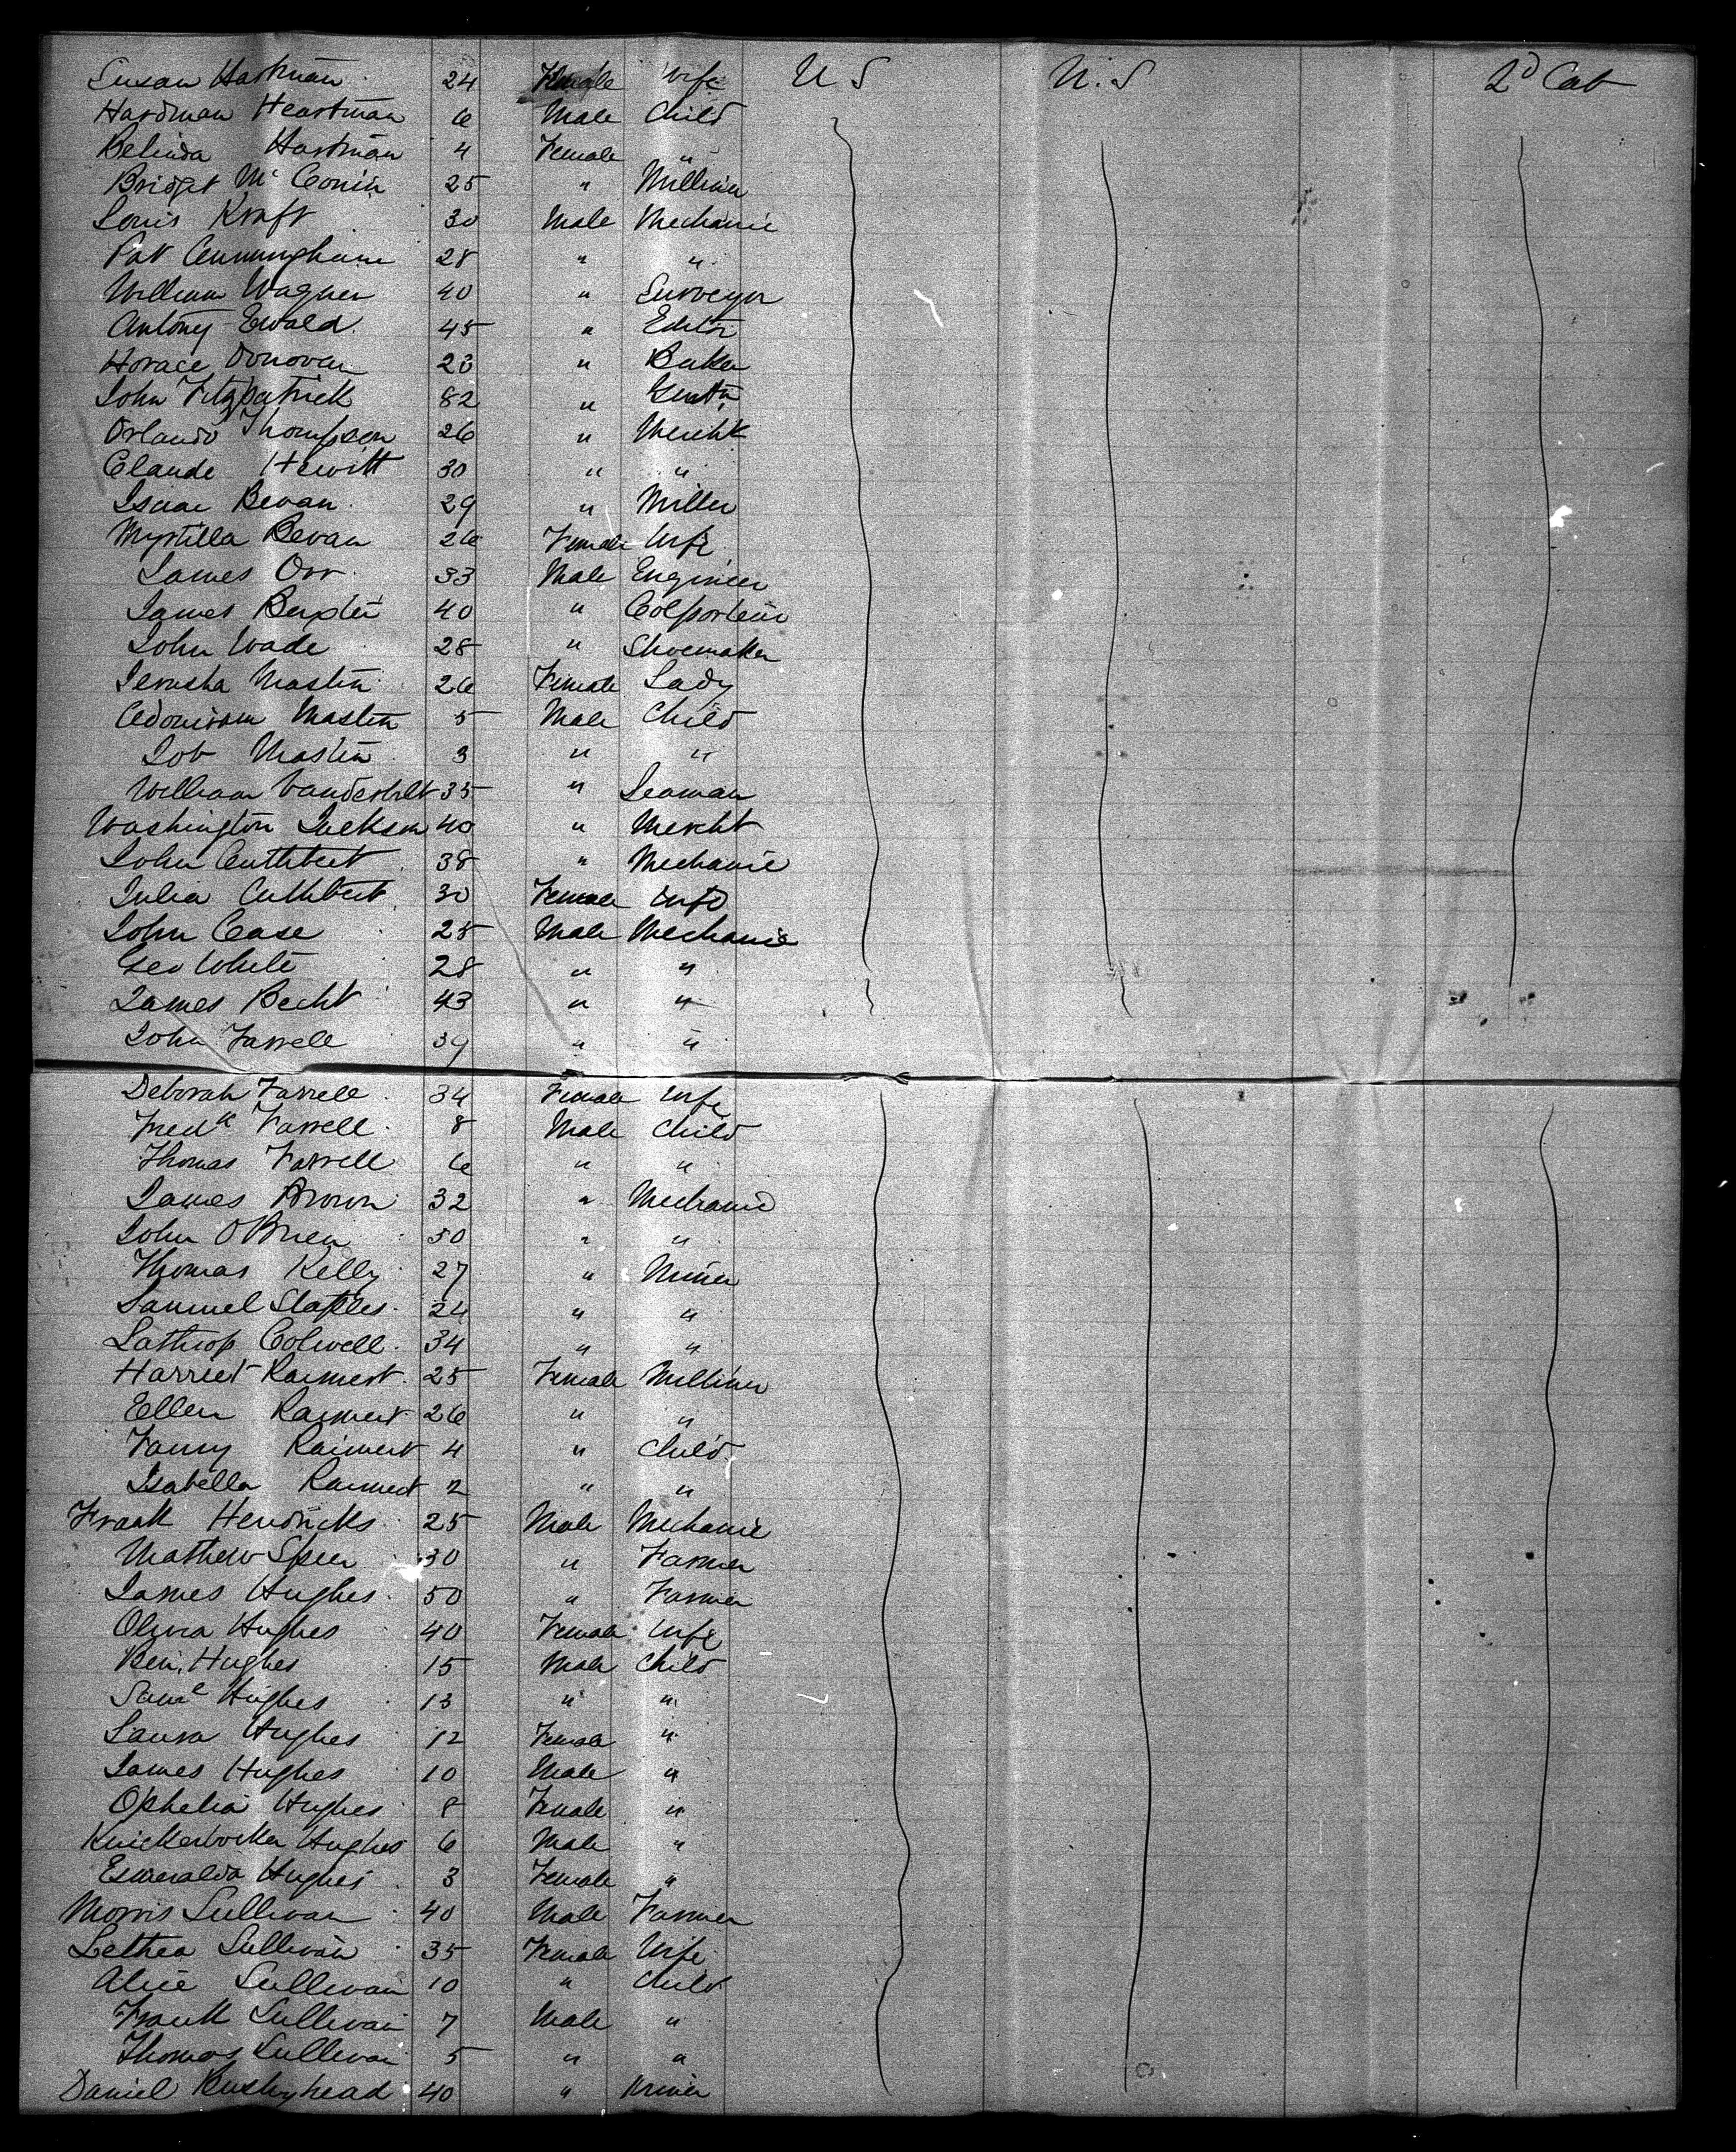 Susan Hartman 24 Female Wife U S U.S 2d Cab
Hardman Heartman 6 Male Child
Belinda Hartman 4 Female "
Bridget Mc 25 " Milliner
Louis Kraft 30 Male Mechanic
Pat Cunningham 28 " "
William Wagner 40 " Surveyor
Antony Ewald 45 " Editor
Horace Donovan 23 " Baker
John Fitzpatrick 82 "
Orlando Thompson 26 "
Claude Hewitt 30 " "
Isaac Bevan 29 " Miller
Myrtilla Bevan 26 Female Wife
James Orr 33 Male Engineer
James 40 " Colporteur
John Wade 28 " Shoemaker
Jerusha Mastin 26 Female Lady
Adoniram Mastin 5 Male Child
Job Mastin 3 " "
William Vanderbilt 35 " Seaman
Washington Jackson 40 " Mercht
John Cuthbert 38 " Mechanic
Julia Cuthbert 30 Female Wife
John Case 25 Male Mechanic
Geo White 28 " "
James Becht 43 " "
John Farrell 39 " "
Deborah Farrell 34 Female Wife
Fredk Farrell 8 Male Child
Thomas Farrell 6 " "
James Brown 32 " Mechanic
John OBrien 50 " "
Thomas Kelly 27 " Miner
Samuel Staples 24 " "
Lathrop Colwell 34 " "
Harriet Raiment 25 Female Milliner
Ellen Raiment 26 " "
Fanny Raiment 4 " Child
Isabella Raiment 2 " "
Frank Hendricks 25 Male Mechanic
Mathew Speer 30 " Farmer
James Hughes 50 " Farmer
Olivia Hughes 40 Female Wife
Ben. Hughes 15 Male Child
Saml Hughes 13 " "
Laura Hughes 12 Female "
James Hughes 10 Male "
Ophelia Hughes 8 Female "
Knickerbocker Hughes 6 Male "
Esmeralda Hughes 3 Female "
Morris Sullivan 40 Male Farmer
Lethea Sullivan 35 Female Wife
Alice Sullivan 10 " Child
Frank Sullivan 7 Male "
Thomas Sullivan 5 " "
Daniel Bushyhead 40 " Miner